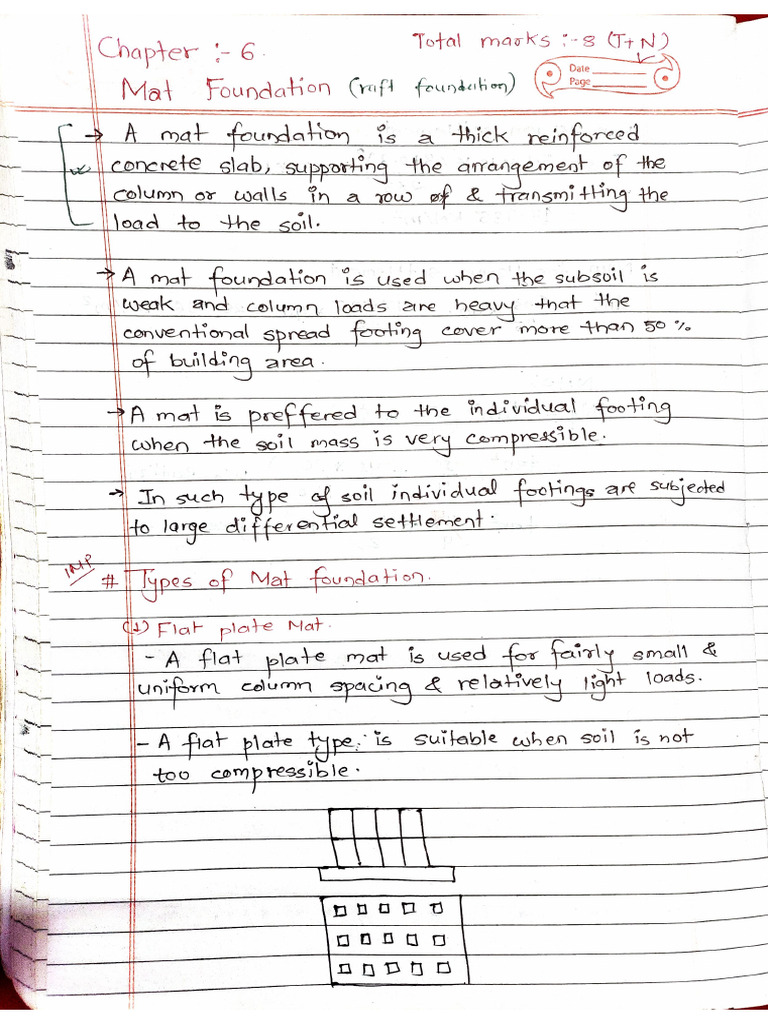 Chapter :- 6.
Total marks :- 8 (T+N)
Date
Page
Mat Foundation (raft foundation)
→ A mat foundation is a thick reinforced
concrete slab, supporting the arrangement of the
column or walls in a row of & transmitting the
load to the soil.
→ A mat foundation is used when the subsoil is
weak and column loads are heavy that the
conventional spread footing cover more than 50 %
of building area.
→ A mat is preffered to the individual footing
when the soil mass is very compressible.
→ In such type of soil individual footings are subjected
to large differential settlement.
IMP
# Types of Mat foundation.
(1) Flat plate Mat.
- A flat plate mat is used for fairly small &
uniform column spacing & relatively light loads.
- A flat plate type, is suitable when soil is not
too compressible.